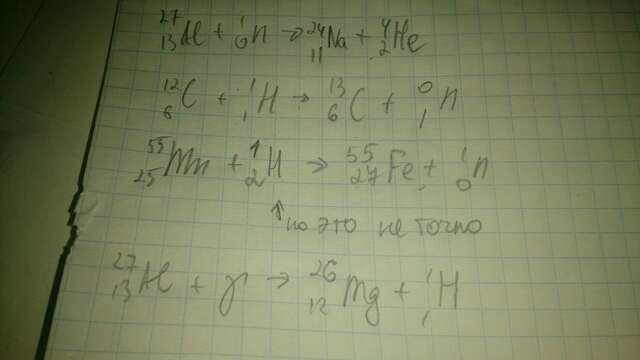 ²⁷₁₃Al + ¹₀n → ²⁴₁₁Na + ⁴₂He
¹²₆C + ¹₁H → ¹³₆C + ⁰₁n
⁵⁵₂₅Mn + ¹₂H → ⁵⁵₂₇Fe + ¹₀n
↑ но это не точно
²⁷₁₃Al + γ → ²⁶₁₂Mg + ¹₁H